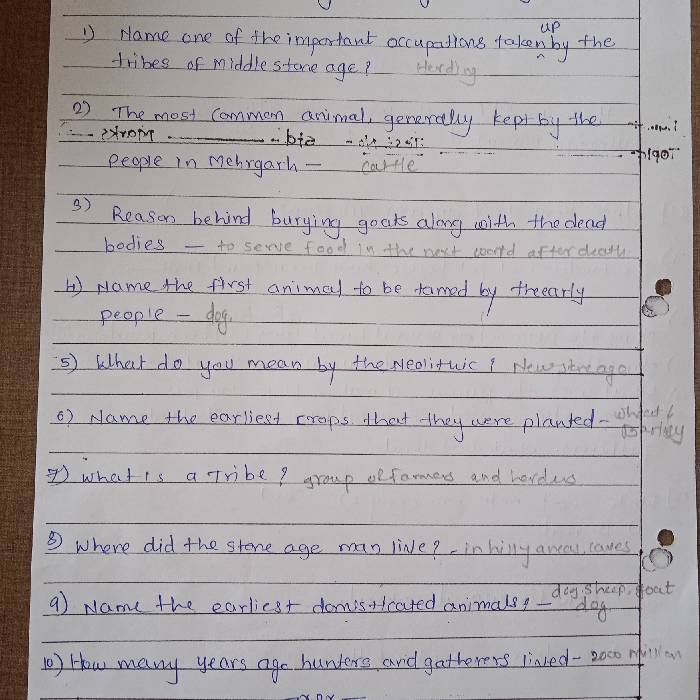 1) Name one of the important occupations taken up by the
tribes of Middle stone age? Herding
2) The most common animal, generally kept by the
people in Mehrgarh – cattle
3) Reason behind burying goats along with the dead
bodies – to serve food in the next world after death
4) Name the first animal to be tamed by theearly
people – dog.
5) What do you mean by the Neolithic? New stone age
6) Name the earliest crops that they were planted – wheat &
Barley
7) What is a Tribe? group of farmers and herders
8) Where did the stone age man live? - in hilly areas, caves
9) Name the earliest domisticated animals? – dog, sheep, goat
dog
10) How many years ago hunters and gatherers lived – 2000 million